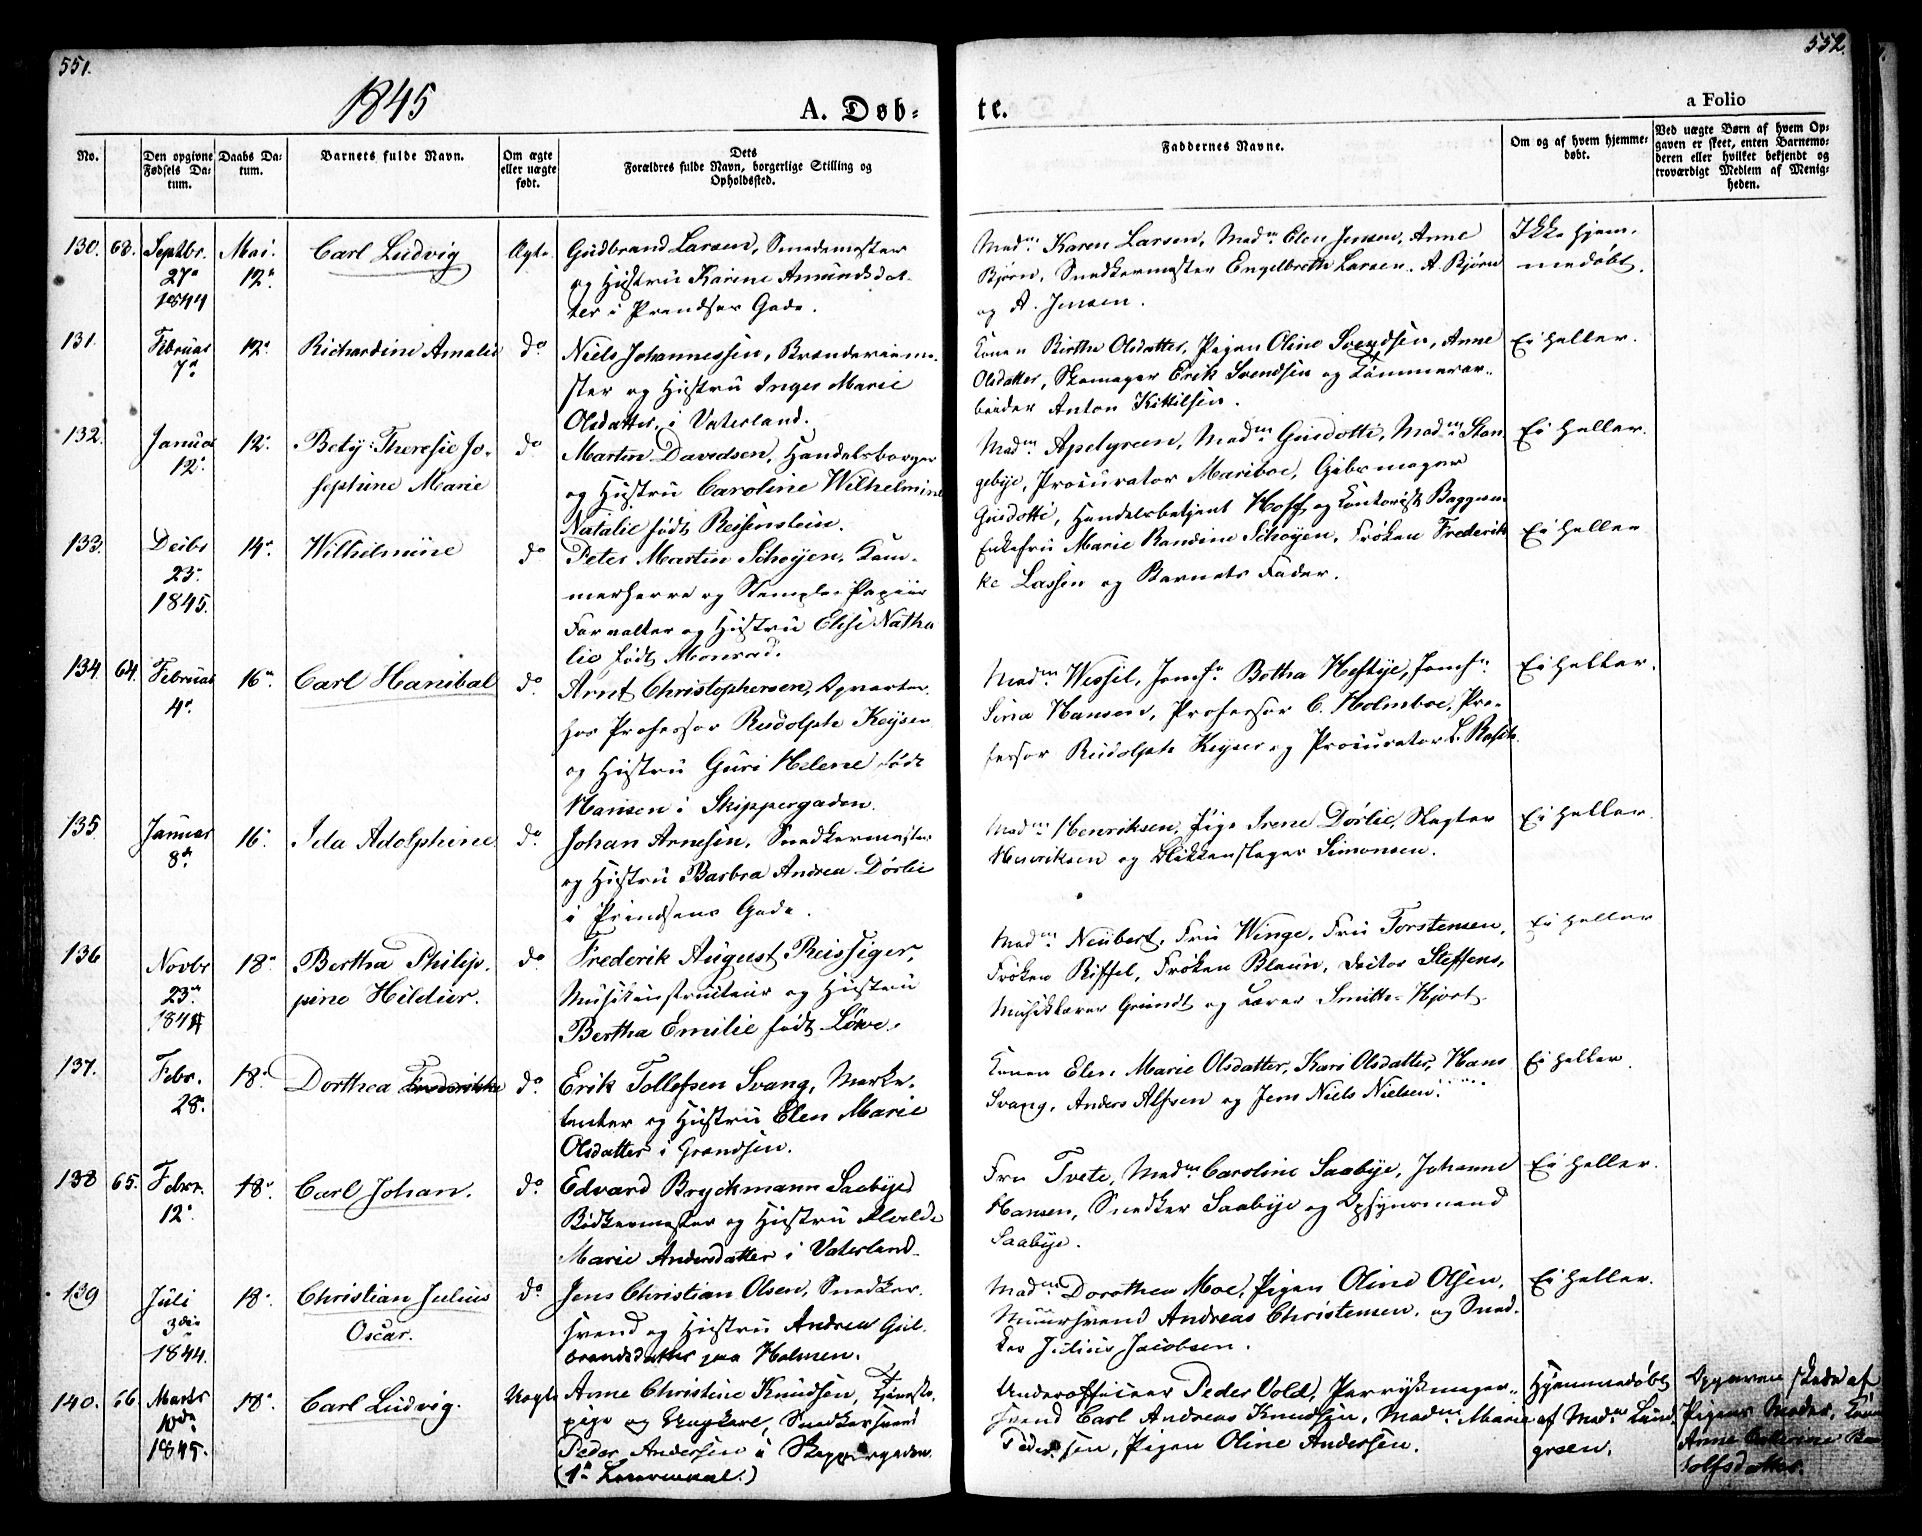 551.
552.
1845
A. Døb-
te.
a Folio
No.
Den opgivne Fødsels Datum.
Daabs Datum.
Barnets fulde Navn.
Om ægte eller uægte født.
Dets Forældres fulde Navn, borgerlige Stilling og Opholdssted.
Faddernes Navne.
Om og af hvem hjemmedøbt.
Ved uægte Børn af hvem Opgaven er skeet, enten Barnemoderen eller hvilket bekjendt og troværdigt Medlem af Menigheden.
130. 63. Septbr. 27de 1844 Mai. 12te Carl Ludvig Ægte
Gudbrand Larsen, Smedemester
og Hustru Karine Amundsdat-
ter i Prindsens Gade.
Madm. Karen Larsen, Madm. Elen Jensen, Anne
Bjørn, Snedkermester Engelbreth Larsen, A. Bjørn
og A. Jensen.
Ikke hjem-
medøbt.
131. Februar 7de 12te Richardine Amalie do
Niels Johannessen, Brænderieme-
ster og Hustru Inger Marie
Olsdatter, i Vaterland.
Konen Birthe Olsdatter, Pigen Oline Svendsen, Anne
Olsdatter, Skomager Erik Svendsen og Tømmerar-
beider Anton Kittilsen.
Ei heller.
132. Januar 12te 12te Bety Theresie Jo-
sephine Marie do
Martin Davidsen, Handelsborger
og Hustru Caroline Wilhelmine
Natalie født Reisenstein.
Madm. Apelgreen, Madm. Guidotti, Madm. Stan-
gebye, Procurator Mariboe, Gibsmager
Guidotti, Handelsbetjent Hoff og Kontorist
Ei heller.
133. Decbr 23de 1845. 14de Wilhelmine do
Peter Martin Schøyen, Kam-
merherre og Stemplet Papiir
Forvalter og Hustru Elise Natha
lie født Monrad.
Enkefru Marie Randine Schøyen, Frøken Frederik
ke Lassen og Barnets Fader.
Ei heller
134. 64. Februar 4de 16de Carl Hanibal do
Arnt Christophersen, Opvarter
hos Professor Rudolph Keyser
og Hustru Guri Helene født
Hansen i Skippergaden.
Madm. Wessel, Jomfr. Botha Heftye, Jomfr.
Sina Hansen, Professor C. Holmboe, Pro-
fessor Rudolph Keyser og Procurator L.
Ei heller.
135 Januar 8de 16de Ida Adolphine do
Johan Arnesen, Snedkermester
og Hustru Barbra Andrea Dørlie
i Prindsens Gade.
Madm. Henriksen, Pige Irene Dørlie, Slagter
Henriksen og Blikkenslager Simonsen.
Ei heller.
136 Novbr 23de 1844 18de Bertha Philip-
pine Hildur. do
Frederik August Reissiger,
Musikinstructeur og Hustru
Bertha Emilie født Löwe.
Madm. Neübert, Fru Winge, Fru Torstensen,
Frøken Riffel, Frøken Blaun, Doctor Steffens,
Musiklærer Grundt og Lærer Smitth-Hjort.
Ei heller
137. Febr. 28de 18de Dorthea Frederikke do
Erik Tollefsen Svang, Marke-
tenter og Hustru Elen Marie
Olsdatter i Grændsen.
Konen Elen Marie Olsdatter, Kari Olsdatter, Hans
Svang, Anders Alfsen og Jens Niels Nielsen.
Ei heller.
138 65. Febr. 12te 18de Carl Johan. do
Edvard Bryckmann Saabye,
Bødkermester og Hustru Alvilde
Marie Andersdatter i Vaterland.
Fru Tvete, Madm. Caroline Saabye, Johanne
Hansen, Snedker Saabye og Opsynsmand
Saabye.
Ei heller.
139 Juli 3die 1844. 18de Christian Julius
Oscar. do
Jens Christian Olsen, Snedker-
svend og Hustru Andrea Gul-
brandsdatter paa Holmen.
Madm. Dorothea Moe, Pigen Oline Olsen,
Muursvend Andreas Christensen, og Sned-
ker Julius Jacobsen.
Ei heller.
140. 66 Marts 10de 1845. 18de Carl Ludvig. Uægte
Anne Christine Knudsen, Tjeneste-
pige og Ungkarl, Snedkersvend
Peder Andersen i Skippergaden.
(1ste Leiermaal.)
Underofficeer Peder Vold, Parykmager-
svend Carl Andreas Knudsen, Madm. Marie
Pedersen, Pigen Oline Andersen.
Hjemmedøbt
af Madm. Lund-
green.
Opgaven skede af
Pigens Moder, Kone
Anne
dolfsdatter.